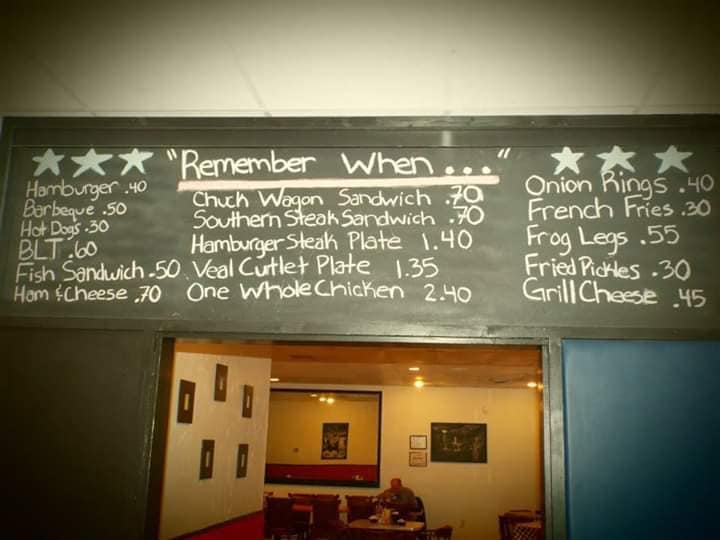 "Remember When..."
Hamburger .40
Barbeque .50
Hot Dogs .30
BLT .60
Fish Sandwich .50
Ham & Cheese .70
Chuck Wagon Sandwich .70
Southern Steak Sandwich .70
Hamburger Steak Plate 1.40
Veal Cutlet Plate 1.35
One Whole Chicken 2.40
Onion Rings .40
French Fries .30
Frog Legs .55
Fried Pickles .30
Grill Cheese .45